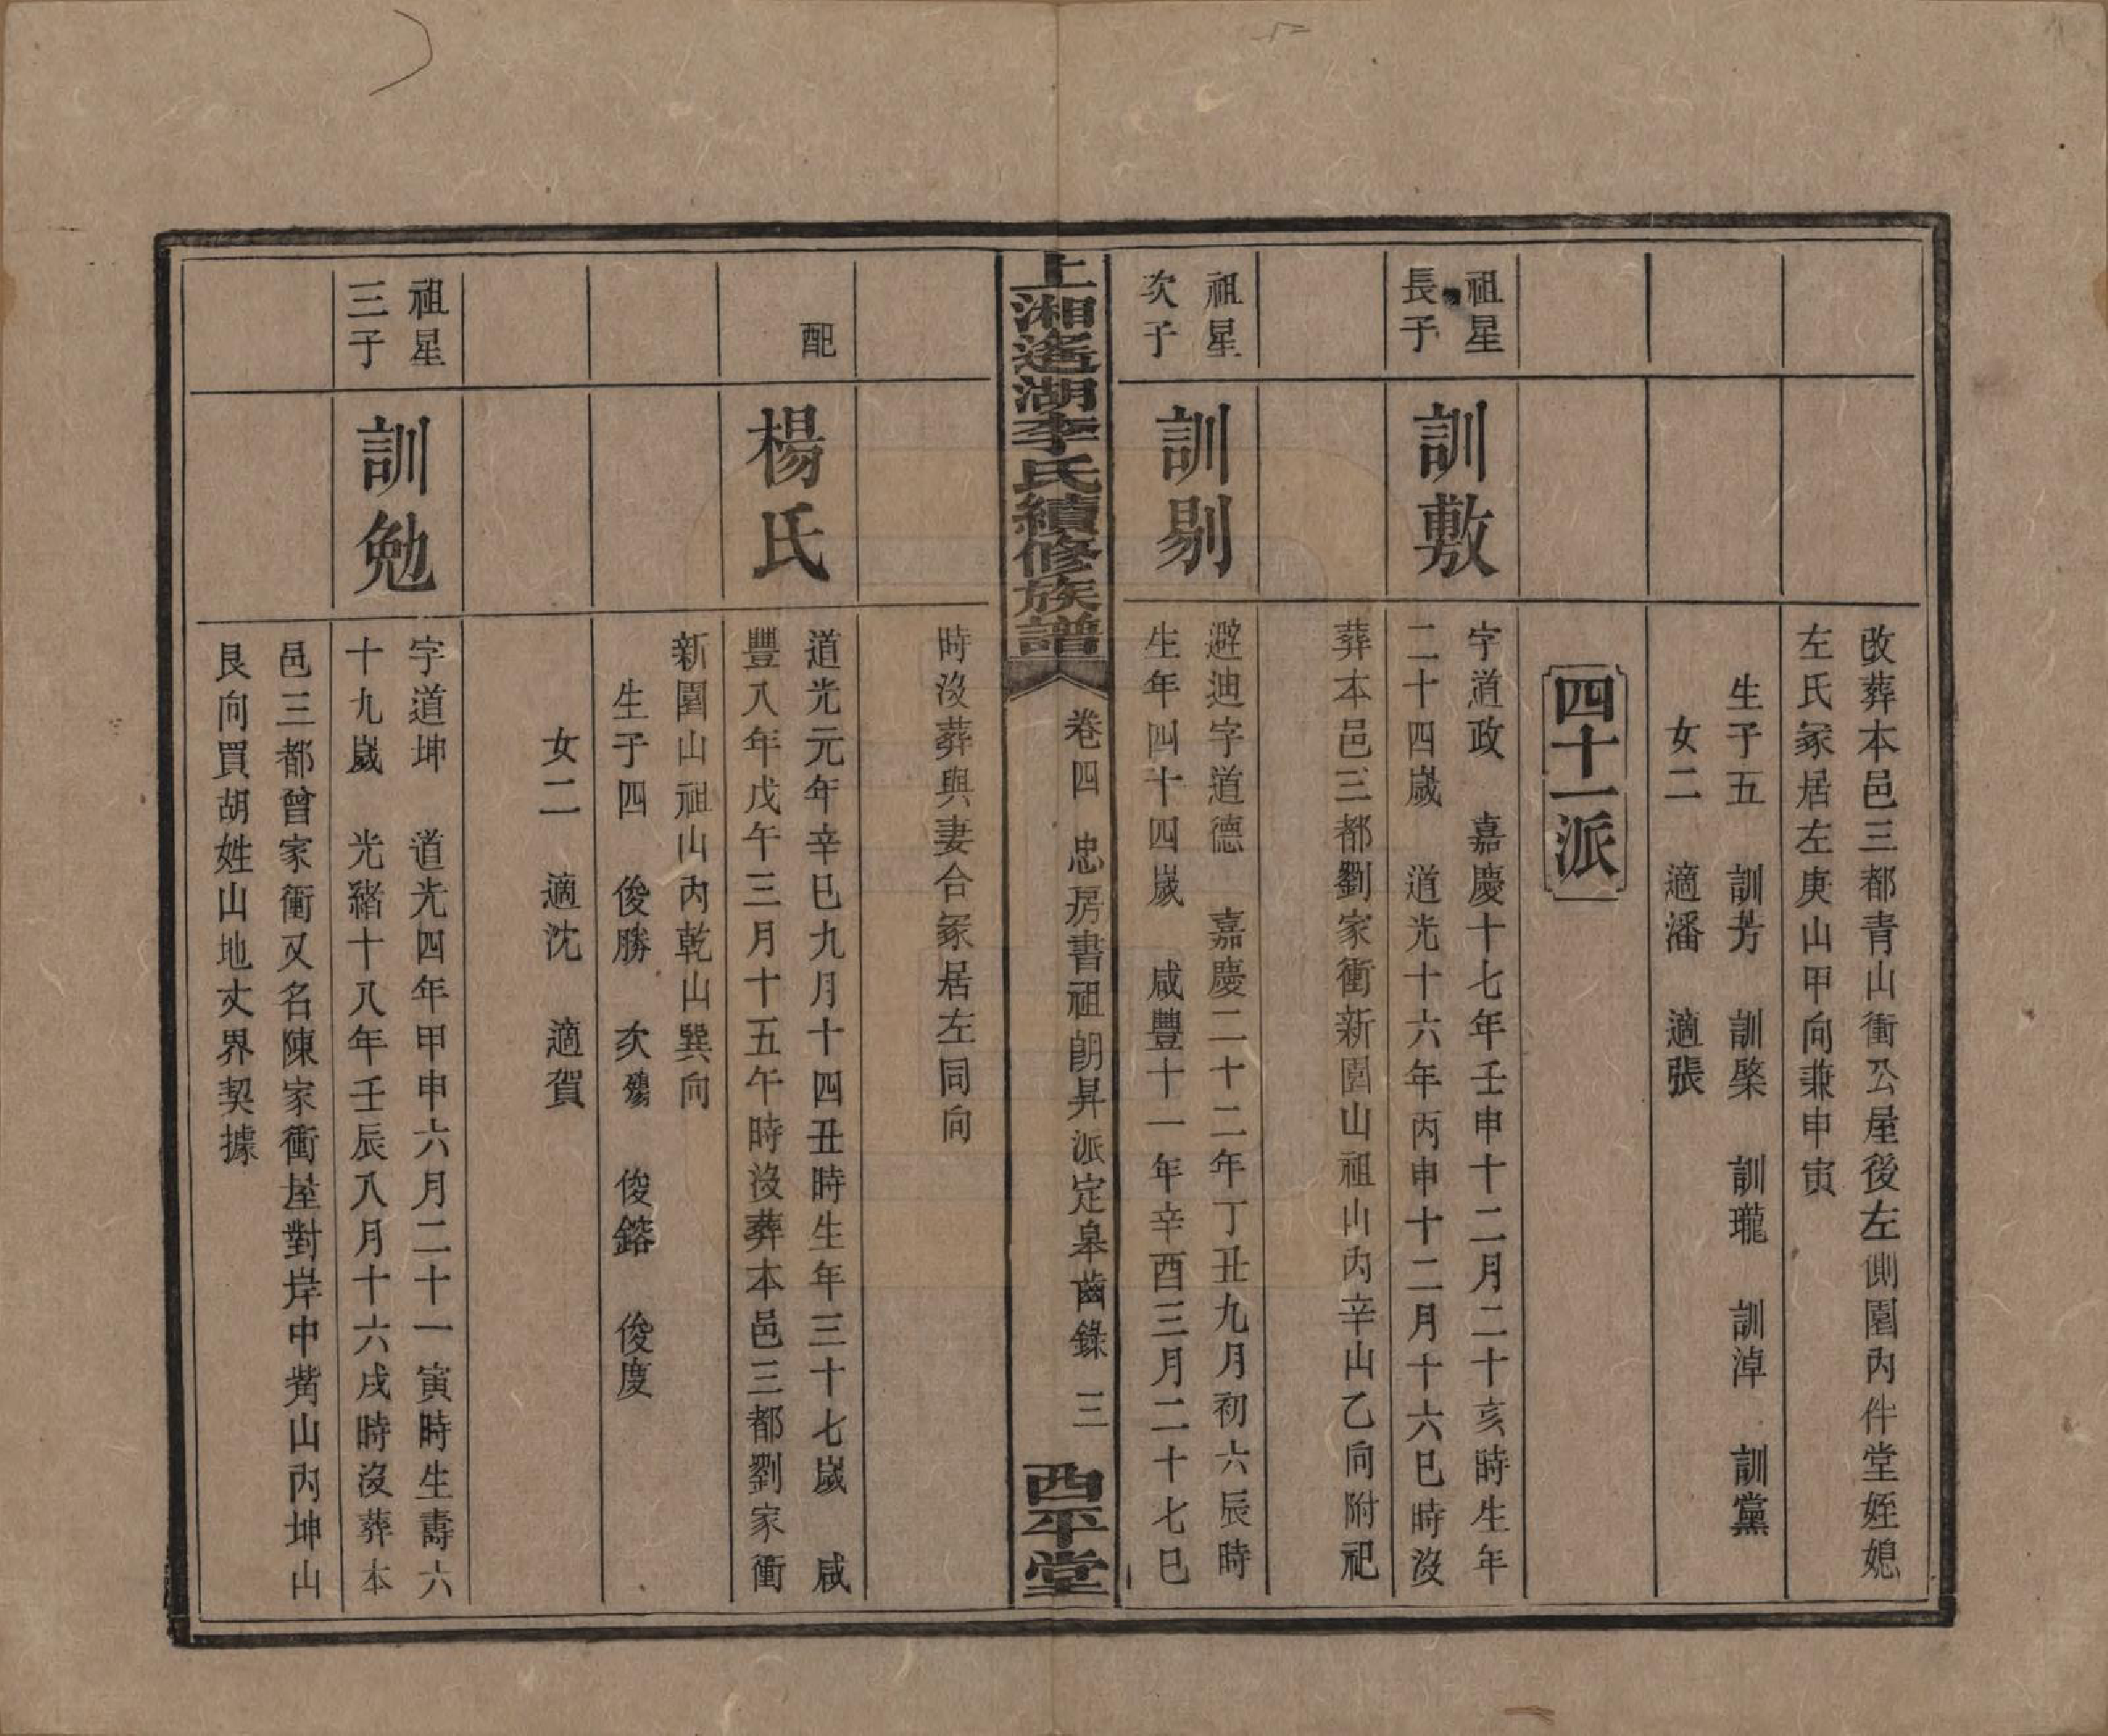 改葬本邑三都青山衝公屋後左側園內件堂姪媳
左氏冢居左庚山甲向兼申寅
生子五　訓芳　訓棨　訓瓏　訓淖　訓黨
女二　適潘　適張
四十一派
祖星
長子
訓敷
字道政　嘉慶十七年壬申十二月二十亥時生年
二十四歲　道光十六年丙申十二月十六巳時沒
葬本邑三都劉家衝新園山祖山內辛山乙向附祀
祖星
次子
訓剔
避迪字道德　嘉慶二十二年丁丑九月初六辰時
生年四十四歲　咸豐十一年辛酉三月二十七巳
上湘遙湖李氏續修族譜
卷四　忠房書祖朗昇派定皋齒錄　三
西平堂
時沒葬與妻合冢居左同向
配
楊氏
道光元年辛巳九月十四丑時生年三十七歲　咸
豐八年戊午三月十五午時沒葬本邑三都劉家衝
新園山祖山內乾山巽向
生子四　俊勝　次殤　俊鎔　俊度
女二　適沈　適賀
祖星
三子
訓勉
字道坤　道光四年甲申六月二十一寅時生壽六
十九歲　光緒十八年壬辰八月十六戌時沒葬本
邑三都曾家衝又名陳家衝屋對岸中觜山內坤山
艮向買胡姓山地丈界契據